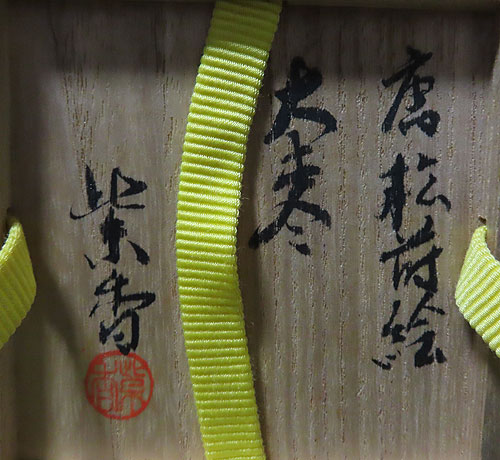 唐松蒔絵
大棗
紫香